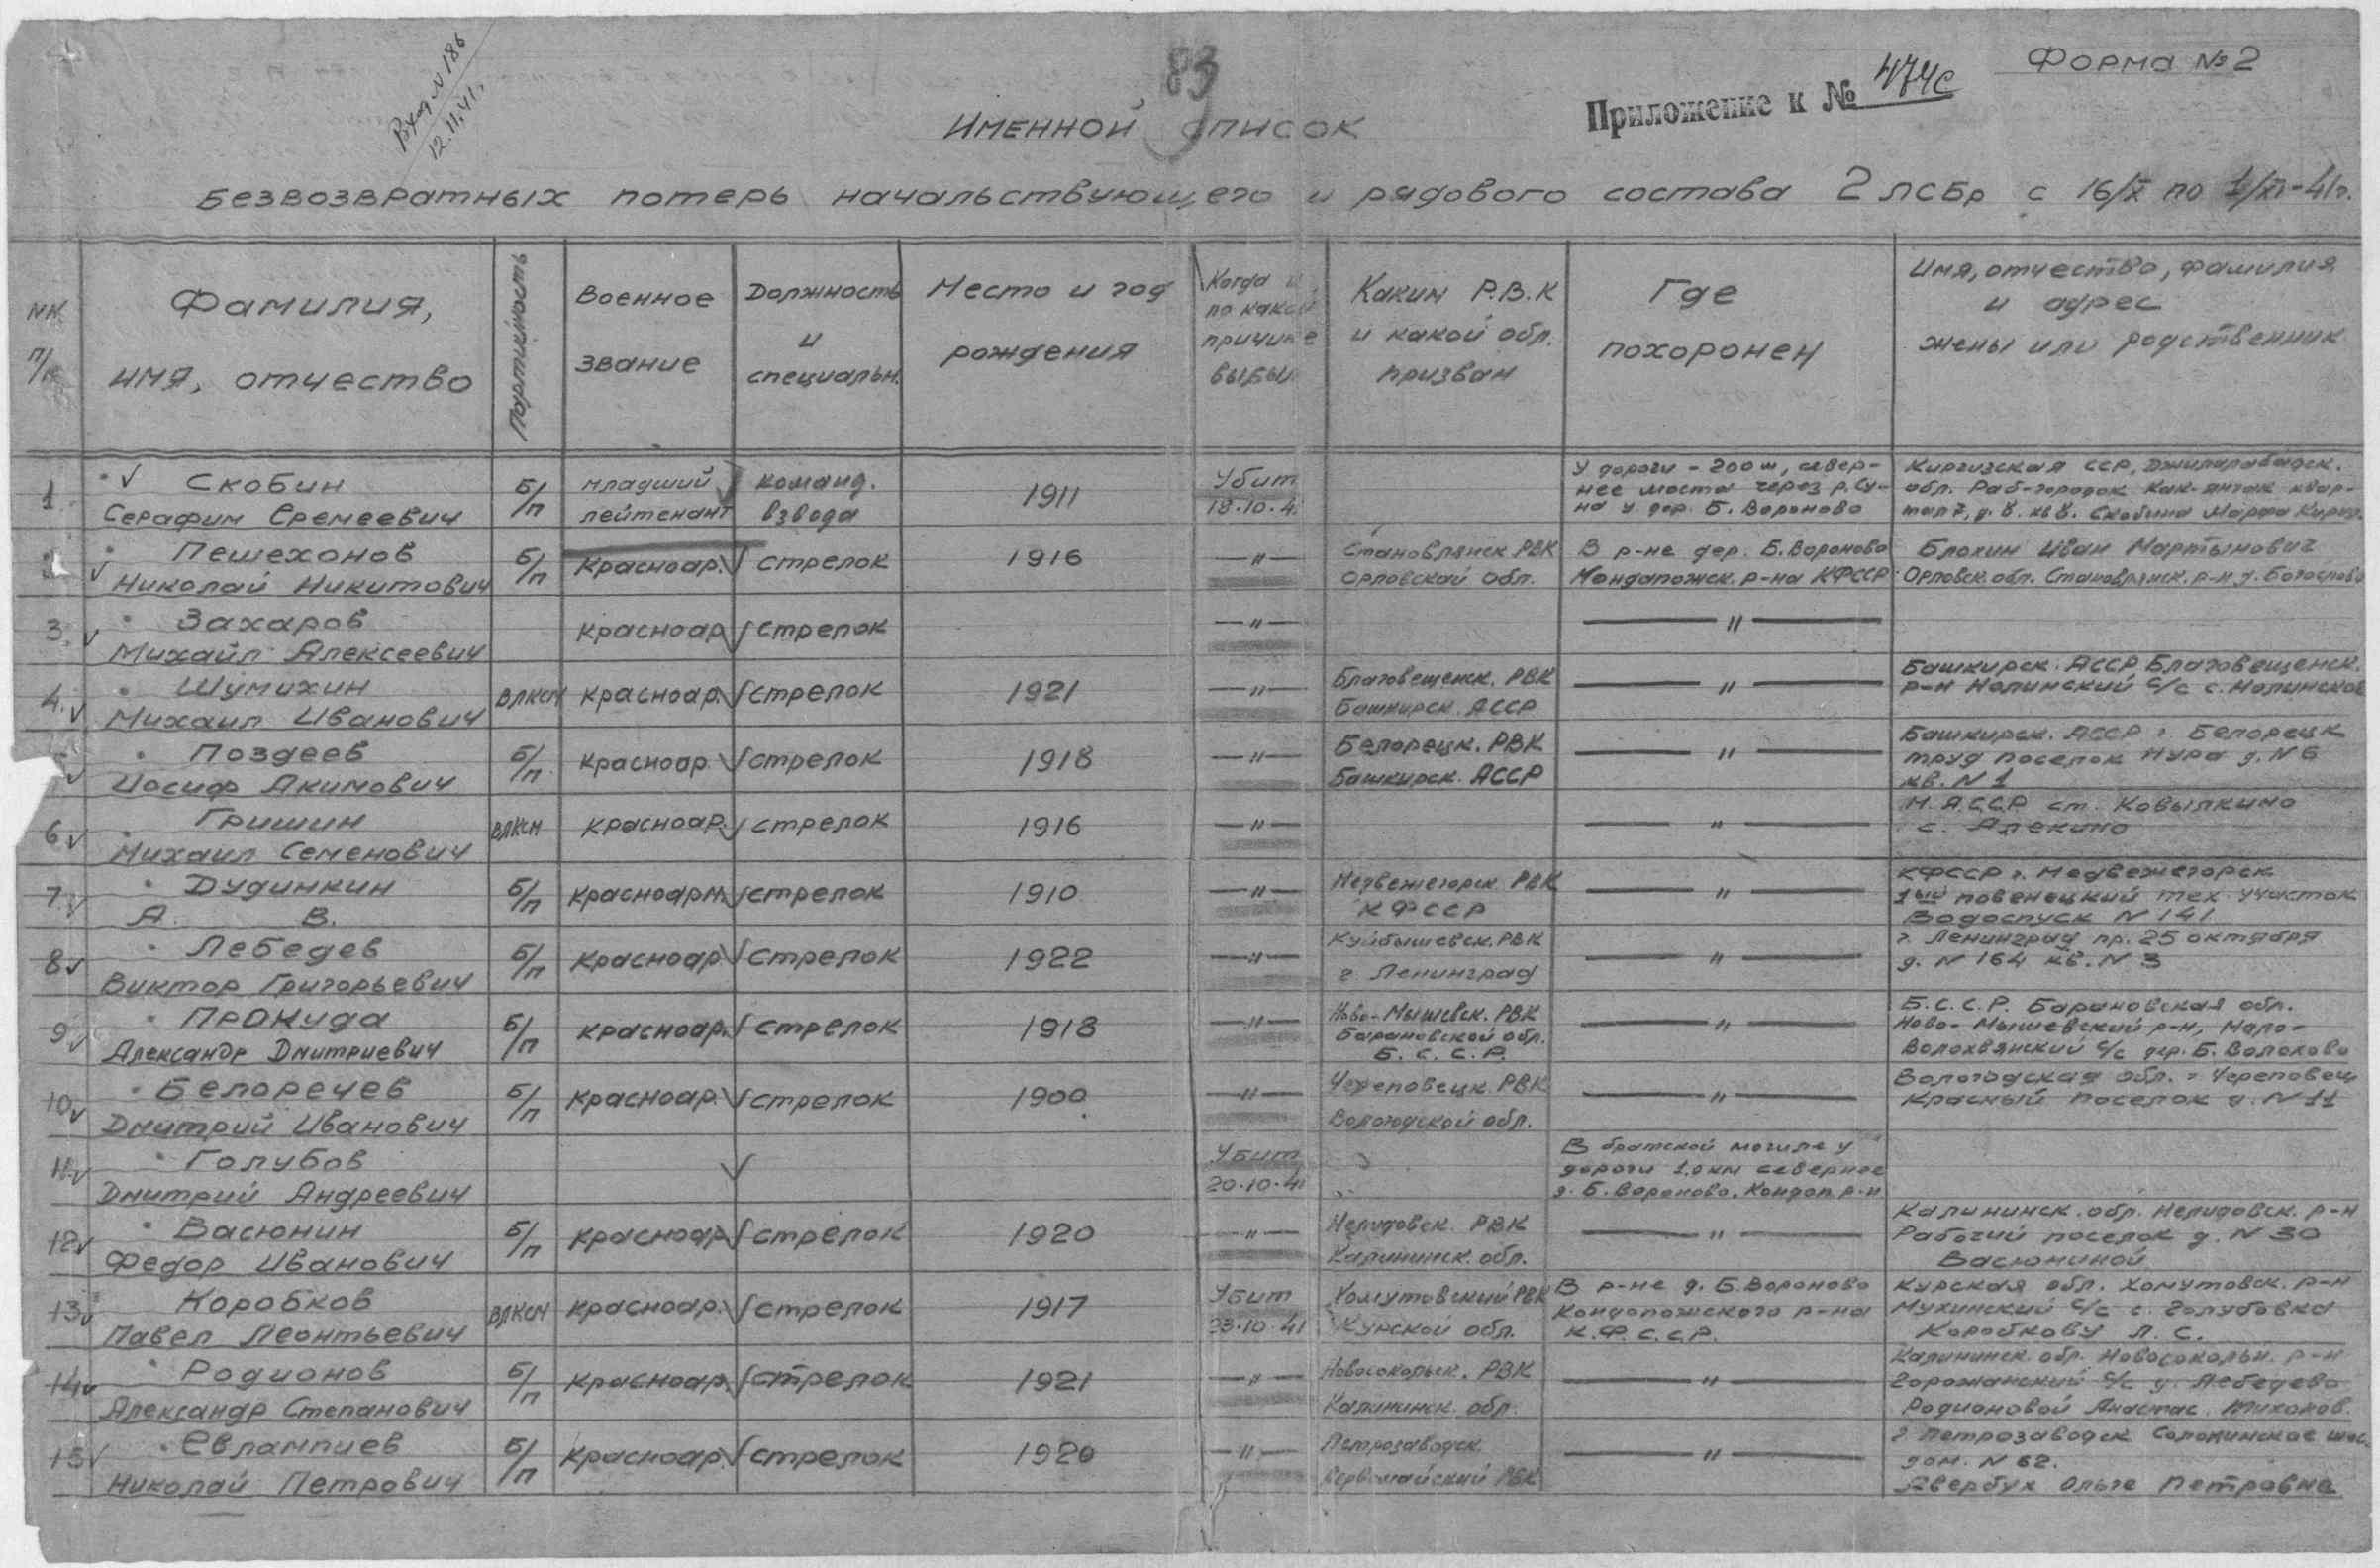 Вход N 186
12.11.41г.
83
Форма №2
Приложение к № 474с
Именной список
Безвозвратных потерь начальствующего и рядового состава 2 ЛСБр с 16/X по 1/XI-41г.
NN п/п
Фамилия, имя, отчество
Партийность
Военное звание
Должность и специальн.
Место и год рождения
Когда и по какой причине выбыл
Каким Р.В.К и какой обл. призван
Где похоронен
Имя, отчество, фамилия и адрес жены или родственник
1
Скобин
Серафим Еремеевич
Б/п
младший
лейтенант
команд.
взвода
1911
Убит
18.10.4
У дороги - 200 м, север-
нее моста через р. Су-
на у дер. Б. Вороново
Киргизская ССР, Джилалабадск.
обл. Раб-городок Кок-янгак квар-
тал 7, д. 8. кв 8. Скобина Марфа
Пешехонов
Николай Никитович
Б/п
Красноар.
стрелок
1916
—"—
Становлянск РВК
Орловской обл.
В р-не дер. Б. Вороново
Кондапожск. р-на КФССР
Блохин Иван Мартынович
Орловск. обл. Становлянск. р-н д. Богослово
3.
Захаров
Михаил Алексеевич
красноар
стрелок
—"—
—"—
4.
Шумихин
Михаил Иванович
ВЛКСМ
красноар.
стрелок
1921
—"—
Благовещенск. РВК
Башкирск. АССР
—"—
Башкирск. АССР Благовещенск.
р-н Налинский С/с с. Налинское
Поздеев
Иосиф Акимович
Б/п.
красноар.
стрелок
1918
—"—
Белорецк. РВК
Башкирск. АССР
—"—
Башкирск. АССР г. Белорецк
труд поселок Нура д. N 6
кв. N 1
6
Гришин
Михаил Семенович
ВЛКСМ
красноар.
стрелок
1916
—"—
—"—
М. А.С.С.Р ст. Ковылкино
с. Алекино
7.
Дудинкин
А. В.
Б/п
красноарм.
стрелок
1910
—"—
Медвежегорск. РВК
КФССР
—"—
КФССР г. Медвежегорск
1ый повенецкий тех. участок
Водоспуск N 141
8
Лебедев
Виктор Григорьевич
Б/п
красноар
стрелок
1922
—"—
Куйбышевск. РВК
г. Ленинград
—"—
г. Ленинград пр. 25 октября
д. N 164 кв. N 3
9
Прокуда
Александр Дмитриевич
Б/п
красноар.
стрелок
1918
—"—
Ново-Мышевск. РВК
Барановской обл.
Б. С. С. Р.
—"—
Б.С.С.Р. Барановская обл.
Ново-Мышевский р-н, Мало-
Волохвянский С/с дер. Б. Волохово
10
Белоречев
Дмитрий Иванович
Б/п
красноар.
стрелок
1900
—"—
Череповецк. РВК
Вологодской обл.
—"—
Вологодская обл. г Череповец
Красный поселок д. N 11
11.
Голубов
Дмитрий Андреевич
Убит
20.10.41
В братской могиле у
дороги 1,0 км севернее
д. Б. Вороново. Кондоп. р-н
12
Васюнин
Федор Иванович
Б/п
красноар
стрелок
1920
—"—
Нелидовск. РВК
Калининск. обл.
—"—
Калининск. обл. Нелидовск. р-н
Рабочий поселок д. N 30
Васюниной
13
Коробков
Павел Леонтьевич
ВЛКСМ
красноар.
стрелок
1917
Убит
23.10.41
Хомутовский РВК
Курской обл.
В р-не д. Б. Вороново
Кондопожского р-на
К.Ф.С.С.Р.
Курская обл. Хомутовск. р-н
Мухинский С/с с. Голубовка
Коробкову Л. С.
14
Родионов
Александр Степанович
Б/п
красноар.
стрелок
1921
—"—
Новосокольск. РВК
Калининск. обл.
—"—
Калининск. обл. Новосокольн. р-н
Горожанский С/с д. Лебедево
Родионовой Анастас. Тихонов.
15
Евлампиев
Николай Петрович
Б/п
красноар.
стрелок
1920
—"—
Петрозаводск.
Первомайский РВК
—"—
г Петрозаводск Соломинское шос.
дом. N 62.
Авербух Ольге Петровне